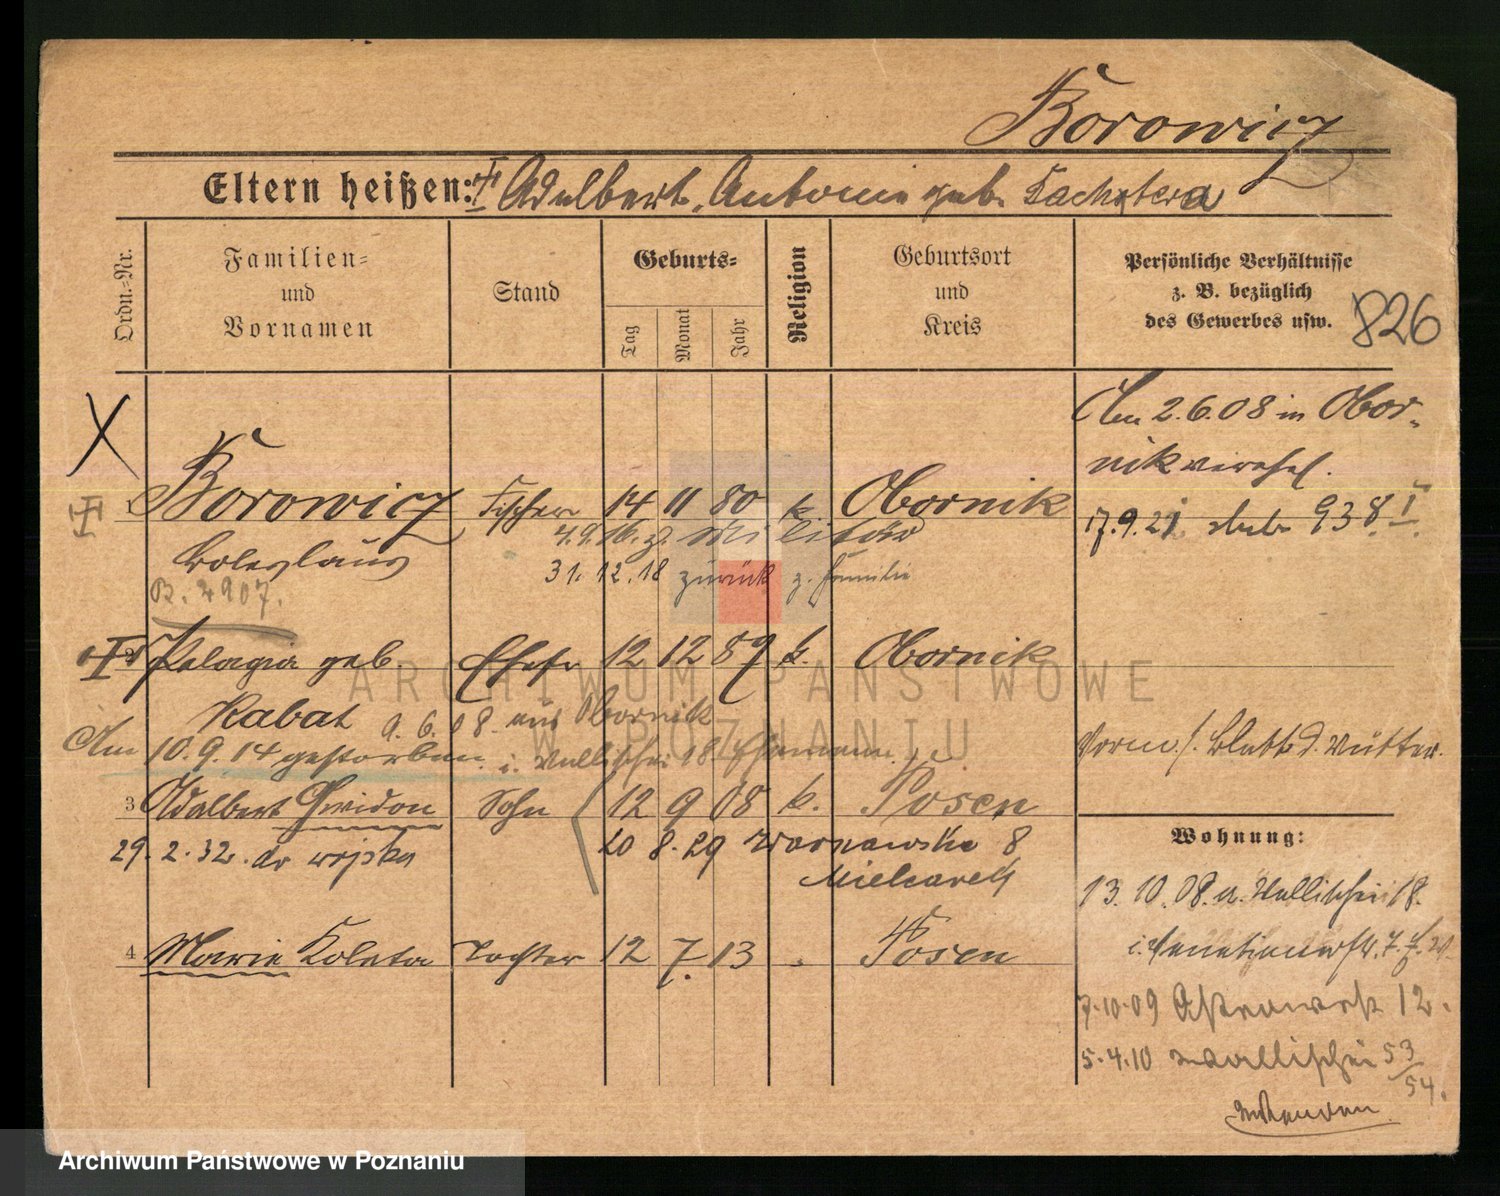 Borowicz
Eltern heißen: Adalbert, Antonie geb.
Ordn.-Nr.
Familien-
und
Vornamen
Stand
Geburts-
Tag
Monat
Jahr
Religion
Geburtsort
und
Kreis
Persönliche Verhältnisse
z. B. bezüglich
des Gewerbes usw.
826
Am 2.6.08 in Obor-
nik verehel.
Borowicz Fischer 14 11 80 k Obornik
17.9.21 938 I
4.9.16. z. Militär
Boleslaus
31.12.18 zurück z. Familie
R. 2907.
2 Pelagia geb. Ehefr 12 12 87 k. Obornik
Kabat 9.6.08 aus Obornik
Am 10.9.14 gestorben i. Wallischei 18
Vorm. Blatt d. Mutter.
3 Adalbert Gwidon Sohn 12 9 08 k. Posen
29.2.32. do wojska 20 8.29 8
Mielcarek
4 Marie Koleta Tochter 12 7. 13 Posen
Wohnung:
13.10.08. a. Wallischei 18.
7.10.09 12.
5.4.10 Wallischei 53/54.
ARCHIWUM PAŃSTWOWE
W POZNANIU
Archiwum Państwowe w Poznaniu